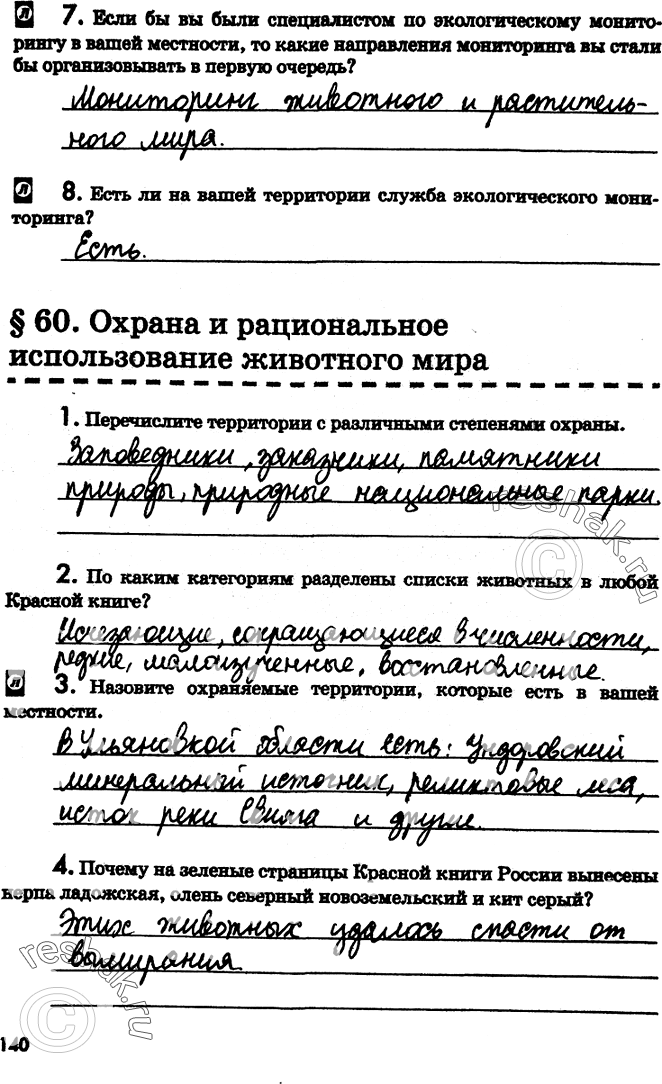 7. Если бы вы были специалистом по экологическому монито-
рингу в вашей местности, то какие направления мониторинга вы стали
бы организовывать в первую очередь?
Мониторинг животного и раститель-
ного мира.
8. Есть ли на вашей территории служба экологического мони-
торинга?
Есть.
§ 60. Охрана и рациональное
использование животного мира
1. Перечислите территории с различными степенями охраны.
Заповедники, заказники, памятники
природы, природные национальные парки.
2. По каким категориям разделены списки животных в любой
Красной книге?
Исчезающие, сокращающиеся в численности,
редкие, малоизученные, восстановленные.
3. Назовите охраняемые территории, которые есть в вашей
местности.
В Ульяновкой области есть: Ундоровский
минеральный источник, реликтовые леса,
исток реки Свияга и другие.
4. Почему на зеленые страницы Красной книги России вынесены
нерпа ладожская, олень северный новоземельский и кит серый?
Этих животных удалось спасти от
вымирания
140
reshak.ru
reshak.ru